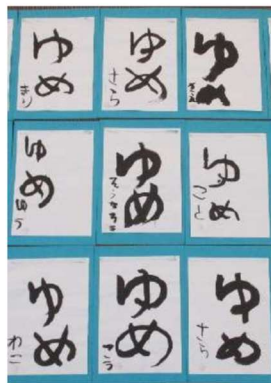 ゆめ
きり
ゆめ
さら
ゆめ
ゆめ
ゆう
ゆめ
ゆめ
こと
ゆめ
わこ
ゆめ
こう
ゆめ
さら